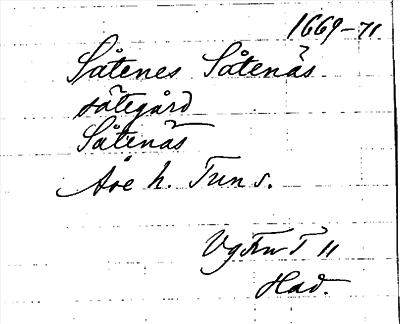 1669-71.
Såtenes Såtenäs
sätegård
Såtenäs
Åse h. Tun s.
Vg Fru T 11
Had.